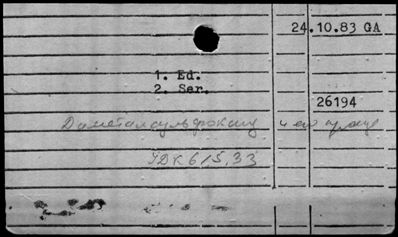 24.10.83 GA
1. Ed.
2. Ser.
26194
Диметилсульфоксид и его
УДК 615.33